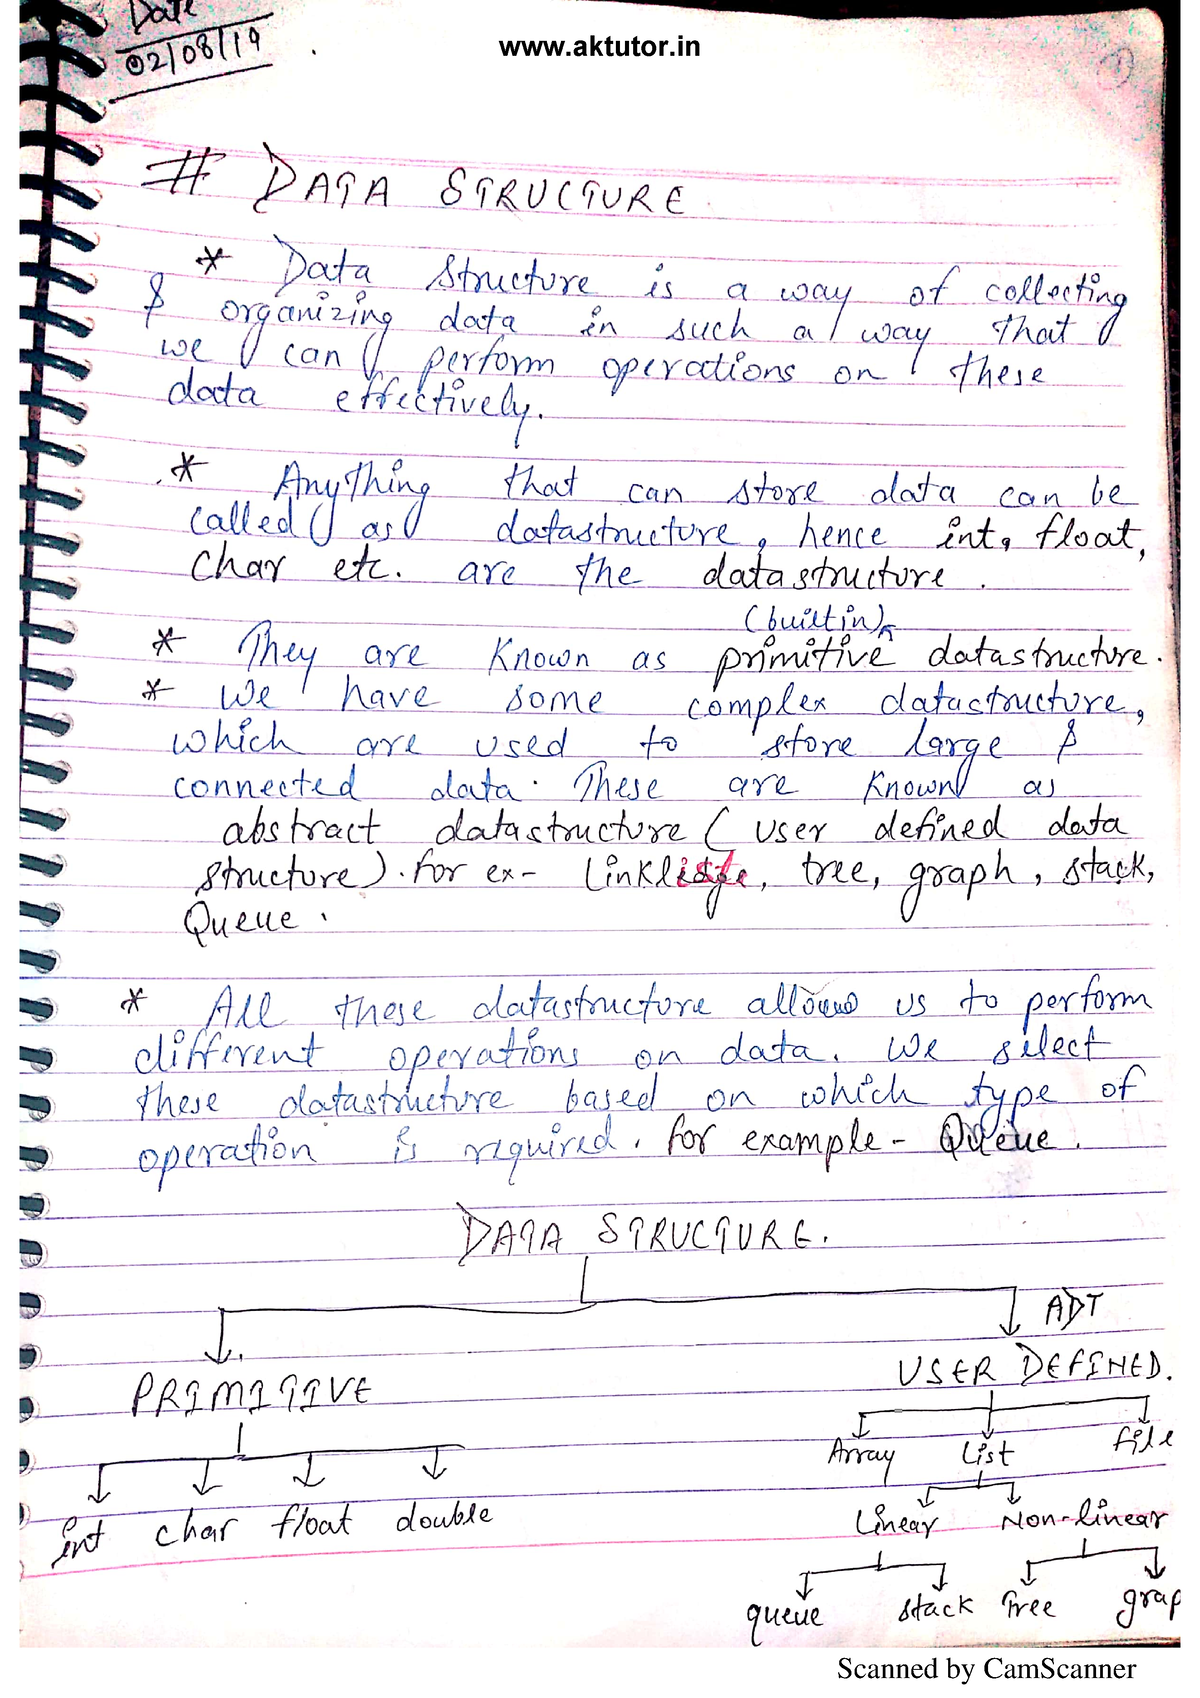 Date
02/08/19
www.aktutor.in
1
# DATA STRUCTURE.
* Data structure is a way of collecting
& organizing data in such a way that
we can perform operations on these
data effectively.
* Anything that can store data can be
called as datastructure, hence int, float,
char etc. are the datastructure.
(builtin)
* They are known as primitive datastructure.
* We have some complex datastructure,
which are used to store large &
connected data. These are known as
abstract datastructure (user defined data
structure). for ex- Linkliste, tree, graph, stack,
Queue.
* All these datastructure allows us to perform
different operations on data. We select
these datastructure based on which type of
operation is required. for example - Queue.
DATA STRUCTURE.
ADT
PRIMITIVE USER DEFINED.
Array List file
int char float double Linear Non-linear
queue stack Tree grap
Scanned by CamScanner